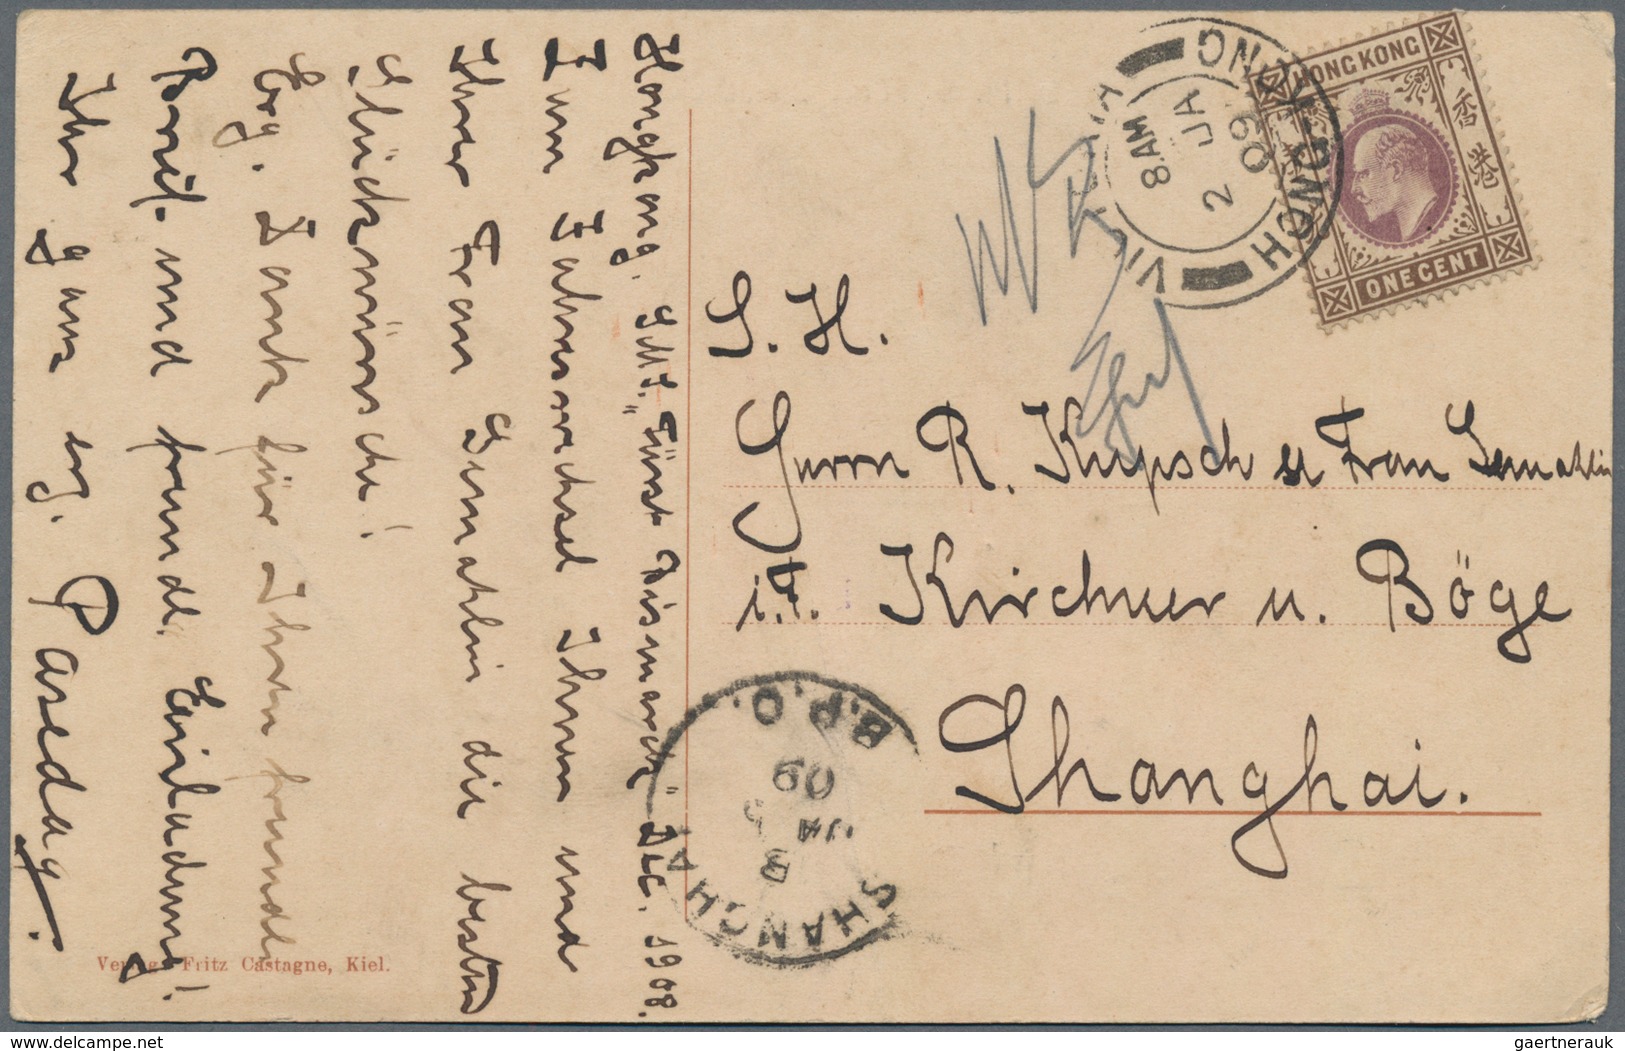 Hongkong. S.M.S. „Fürst Bismarck" Dec. 1908.
Zum Jahreswechsel Ihnen und
Ihrer Frau Gemahlin die besten
Glückwünsche!
Erg. Dank für Ihren freundl.
Brief und freundl. Einladung!
Ihr ganz erg. Paschdag.
Verlag: Fritz Castagne, Kiel.
HONG KONG
香港
ONE CENT
VICTORIA
HONG-KONG
8.AM
2 JA
09
S. H.
Herrn R. Kupsch u Frau Gemahlin
Kirchner u. Böge
Shanghai.
SHANGHAI
B
JA 5
09
B.P.O.
gaertnerauk